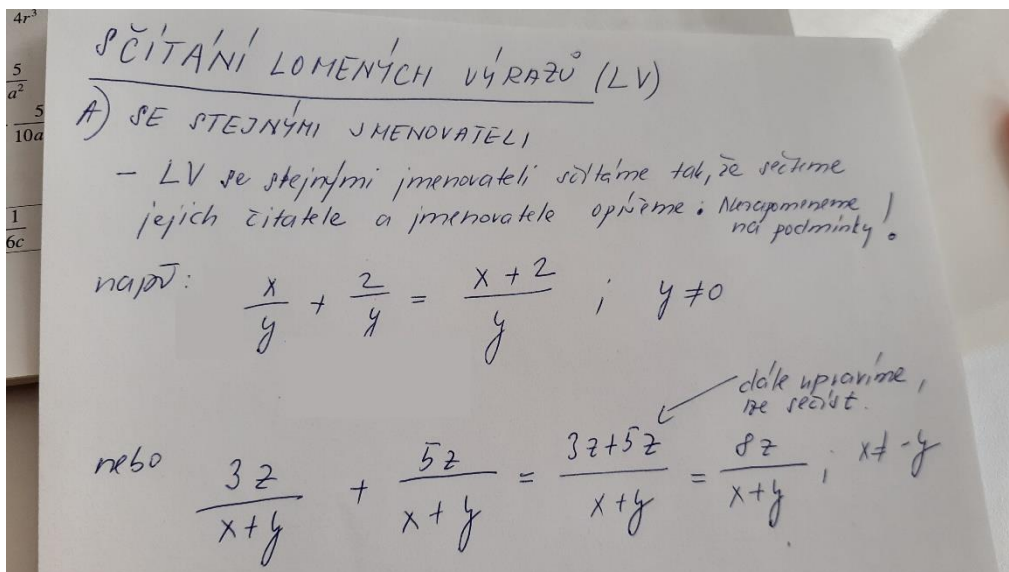 4r³
5/a²
5/10a
1/6c
SČÍTÁNÍ LOMENÝCH VÝRAZŮ (LV)
A) SE STEJNÝMI JMENOVATELI
– LV se stejnými jmenovateli sčítáme tak, že sečteme
jejich čitatele a jmenovatele opíšeme. Nezapomeneme
na podmínky!
např:
x/y + 2/y = (x + 2)/y ; y ≠ 0
dále upravíme,
lze sečíst.
nebo 3z/(x+y) + 5z/(x+y) = (3z+5z)/(x+y) = 8z/(x+y) ; x ≠ -y